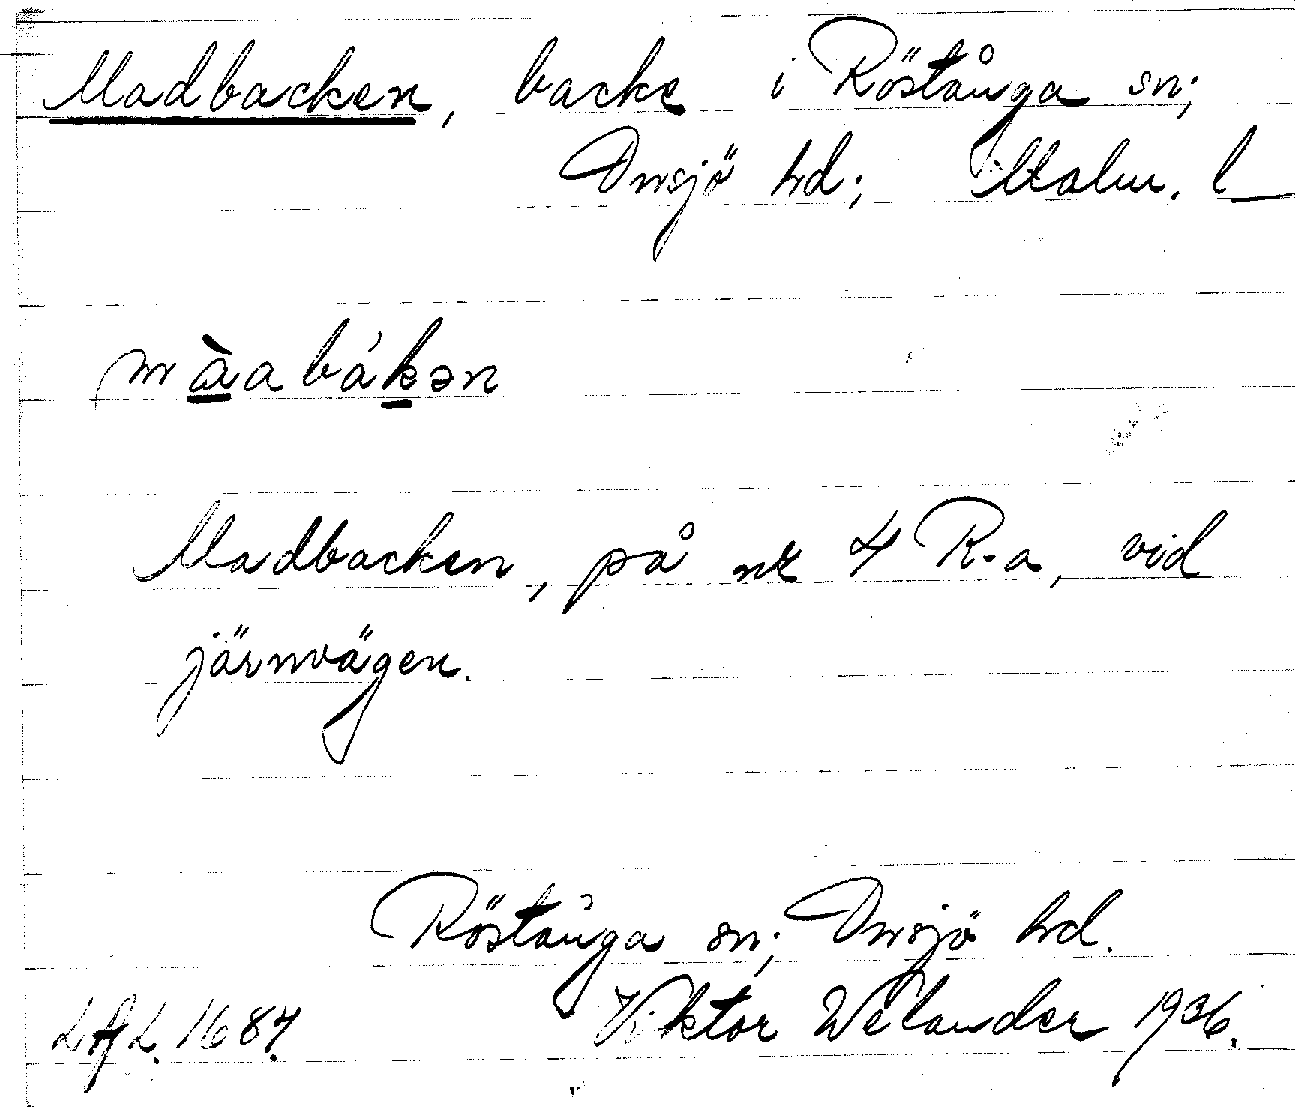 Madbacken, backe i Röstånga sn;
Onsjö hd; Malm. l
màabákən
Madbacken, på nr 4 R-a, vid
järnvägen.
Röstånga sn; Onsjö hd.
LAL. 1687. Viktor Welander 1936.